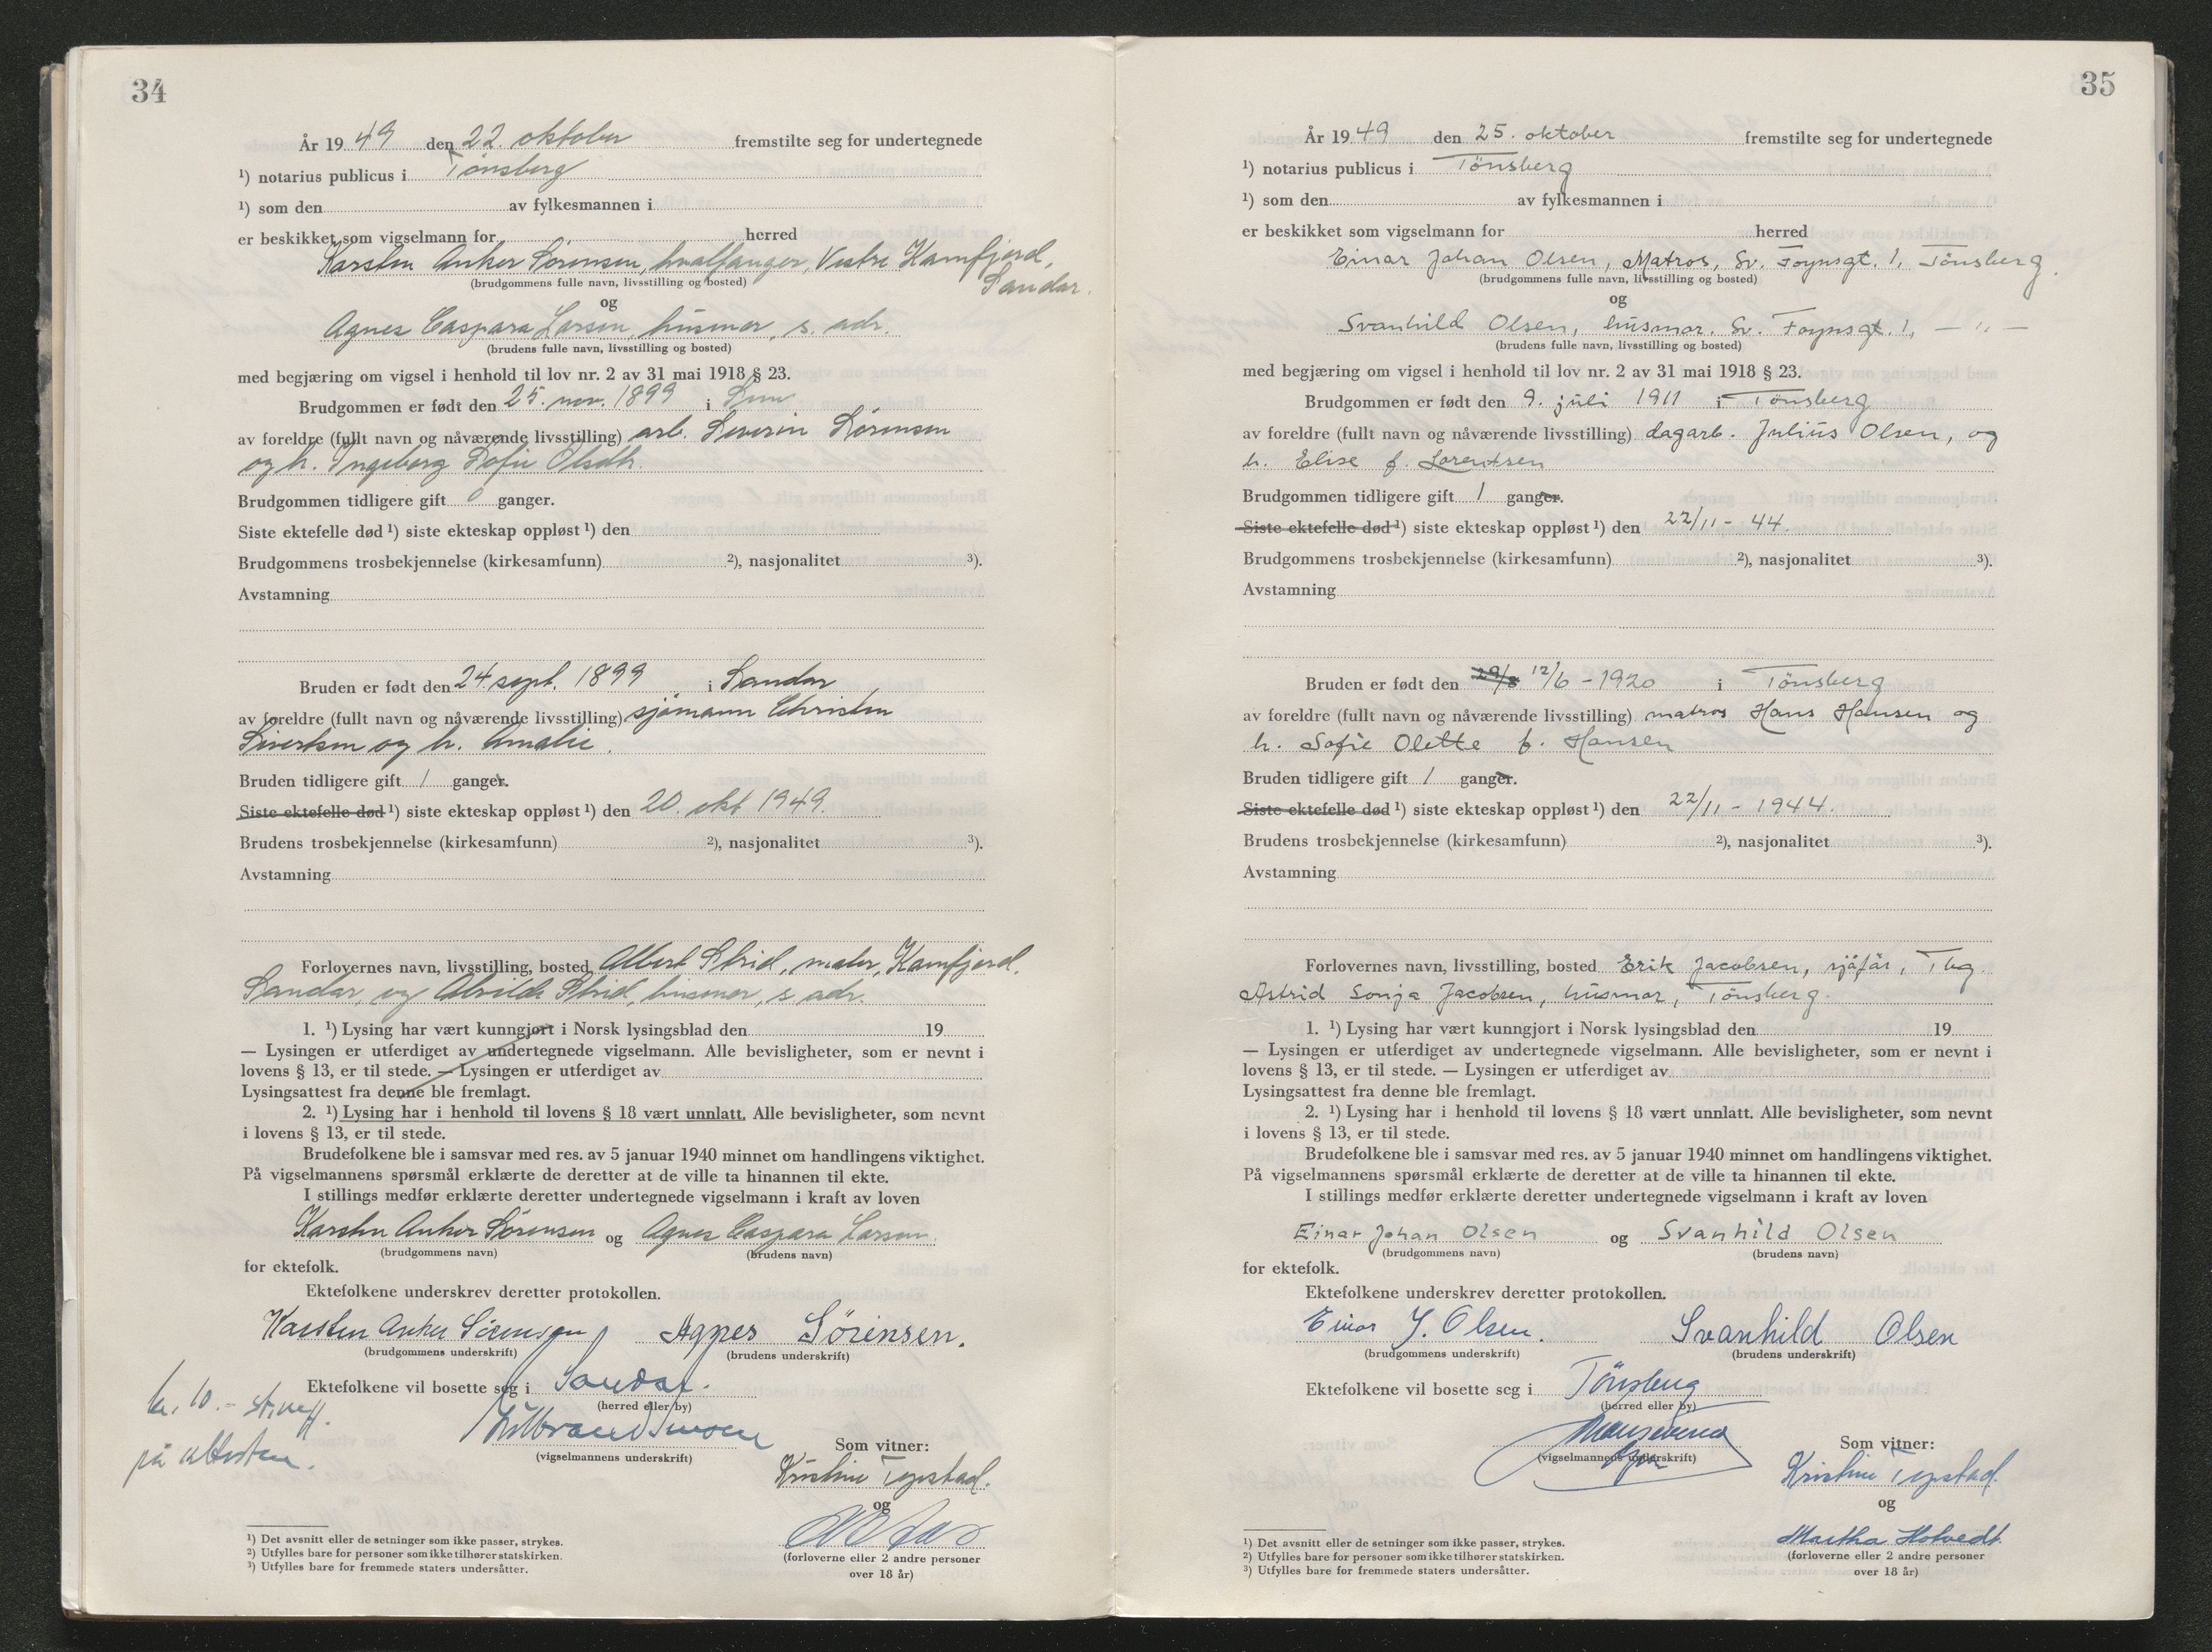 34
År 1949 den 22. oktober fremstilte seg for undertegnede
¹) notarius publicus i Tønsberg
¹) som den av fylkesmannen i
er beskikket som vigselmann for herred
Karsten Anker Sørensen, hvalfanger, Vestre Kamfjord,
Sandar.
(brudgommens fulle navn, livsstilling og bosted)
og
Agnes Caspara Larsen, husmor, s. adr.
(brudens fulle navn, livsstilling og bosted)
med begjæring om vigsel i henhold til lov nr. 2 av 31 mai 1918 § 23.
Brudgommen er født den 25. nov. 1899 i
av foreldre (fullt navn og nåværende livsstilling) arb. Severin Sørensen
og h. Ingeborg Sofie Olsdtr.
Brudgommen tidligere gift 0 ganger.
Siste ektefelle død ¹) siste ekteskap oppløst ¹) den
Brudgommens trosbekjennelse (kirkesamfunn) ²), nasjonalitet ³).
Avstamning
Bruden er født den 24. sept. 1899 i Sandar
av foreldre (fullt navn og nåværende livsstilling) sjømann Christen
Sivertsen og h. Amalie.
Bruden tidligere gift 1 ganger.
Siste ektefelle død ¹) siste ekteskap oppløst ¹) den 20. okt 1949.
Brudens trosbekjennelse (kirkesamfunn) ²), nasjonalitet ³).
Avstamning
Forlovernes navn, livsstilling, bosted Albert Strid, maler, Kamfjord,
Sandar, og Alvilde Strid, husmor, s. adr.
1. ¹) Lysing har vært kunngjort i Norsk lysingsblad den 19
— Lysingen er utferdiget av undertegnede vigselmann. Alle bevisligheter, som er nevnt i
lovens § 13, er til stede. — Lysingen er utferdiget av
Lysingsattest fra denne ble fremlagt.
2. ¹) Lysing har i henhold til lovens § 18 vært unnlatt. Alle bevisligheter, som nevnt
i lovens § 13, er til stede.
Brudefolkene ble i samsvar med res. av 5 januar 1940 minnet om handlingens viktighet.
På vigselmannens spørsmål erklærte de deretter at de ville ta hinannen til ekte.
I stillings medfør erklærte deretter undertegnede vigselmann i kraft av loven
Karsten Anker Sørensen og Agnes Caspara Larsen
(brudgommens navn) (brudens navn)
for ektefolk.
Ektefolkene underskrev deretter protokollen.
Karsten Anker Sørensen Agnes Sørensen.
(brudgommens underskrift) (brudens underskrift)
Ektefolkene vil bosette seg i Sandar.
(herred eller by)
kr. 10.-
på attesten.
(vigselmannens underskrift)
Som vitner:
Kristine Tepstad.
og
(forloverne eller 2 andre personer
over 18 år)
¹) Det avsnitt eller de setninger som ikke passer, strykes.
²) Utfylles bare for personer som ikke tilhører statskirken.
³) Utfylles bare for fremmede staters undersåtter.
35
År 1949 den 25. oktober fremstilte seg for undertegnede
¹) notarius publicus i Tönsberg
¹) som den av fylkesmannen i
er beskikket som vigselmann for herred
Einar Johan Olsen, Matros, Sv. Foynsgt. 1, Tönsberg.
(brudgommens fulle navn, livsstilling og bosted)
og
Svanhild Olsen, husmor, Sv. Foynsgt. 1, — " —
(brudens fulle navn, livsstilling og bosted)
med begjæring om vigsel i henhold til lov nr. 2 av 31 mai 1918 § 23.
Brudgommen er født den 9. juli 1911 i Tönsberg
av foreldre (fullt navn og nåværende livsstilling) dagarb. Julius Olsen, og
h. Elise f. Lorentsen
Brudgommen tidligere gift 1 ganger.
Siste ektefelle død ¹) siste ekteskap oppløst ¹) den 22/11 - 44.
Brudgommens trosbekjennelse (kirkesamfunn) ²), nasjonalitet ³).
Avstamning
Bruden er født den 29/8 12/6 - 1920 i Tönsberg
av foreldre (fullt navn og nåværende livsstilling) matros Hans Hansen og
h. Sofie Olette f. Hansen
Bruden tidligere gift 1 ganger.
Siste ektefelle død ¹) siste ekteskap oppløst ¹) den 22/11 - 1944.
Brudens trosbekjennelse (kirkesamfunn) ²), nasjonalitet ³).
Avstamning
Forlovernes navn, livsstilling, bosted Erik Jacobsen, sjåfør, Tbg.
Astrid Sonja Jacobsen, husmor, Tönsberg.
1. ¹) Lysing har vært kunngjort i Norsk lysingsblad den 19
— Lysingen er utferdiget av undertegnede vigselmann. Alle bevisligheter, som er nevnt i
lovens § 13, er til stede. — Lysingen er utferdiget av
Lysingsattest fra denne ble fremlagt.
2. ¹) Lysing har i henhold til lovens § 18 vært unnlatt. Alle bevisligheter, som nevnt
i lovens § 13, er til stede.
Brudefolkene ble i samsvar med res. av 5 januar 1940 minnet om handlingens viktighet.
På vigselmannens spørsmål erklærte de deretter at de ville ta hinannen til ekte.
I stillings medfør erklærte deretter undertegnede vigselmann i kraft av loven
Einar Johan Olsen og Svanhild Olsen
(brudgommens navn) (brudens navn)
for ektefolk.
Ektefolkene underskrev deretter protokollen.
Einar J. Olsen. Svanhild Olsen
(brudgommens underskrift) (brudens underskrift)
Ektefolkene vil bosette seg i Tönsberg
(herred eller by)
(vigselmannens underskrift)
Som vitner:
Kristine Tepstad.
og
Martha Hotvedt
(forloverne eller 2 andre personer
over 18 år)
¹) Det avsnitt eller de setninger som ikke passer, strykes.
²) Utfylles bare for personer som ikke tilhører statskirken.
³) Utfylles bare for fremmede staters undersåtter.